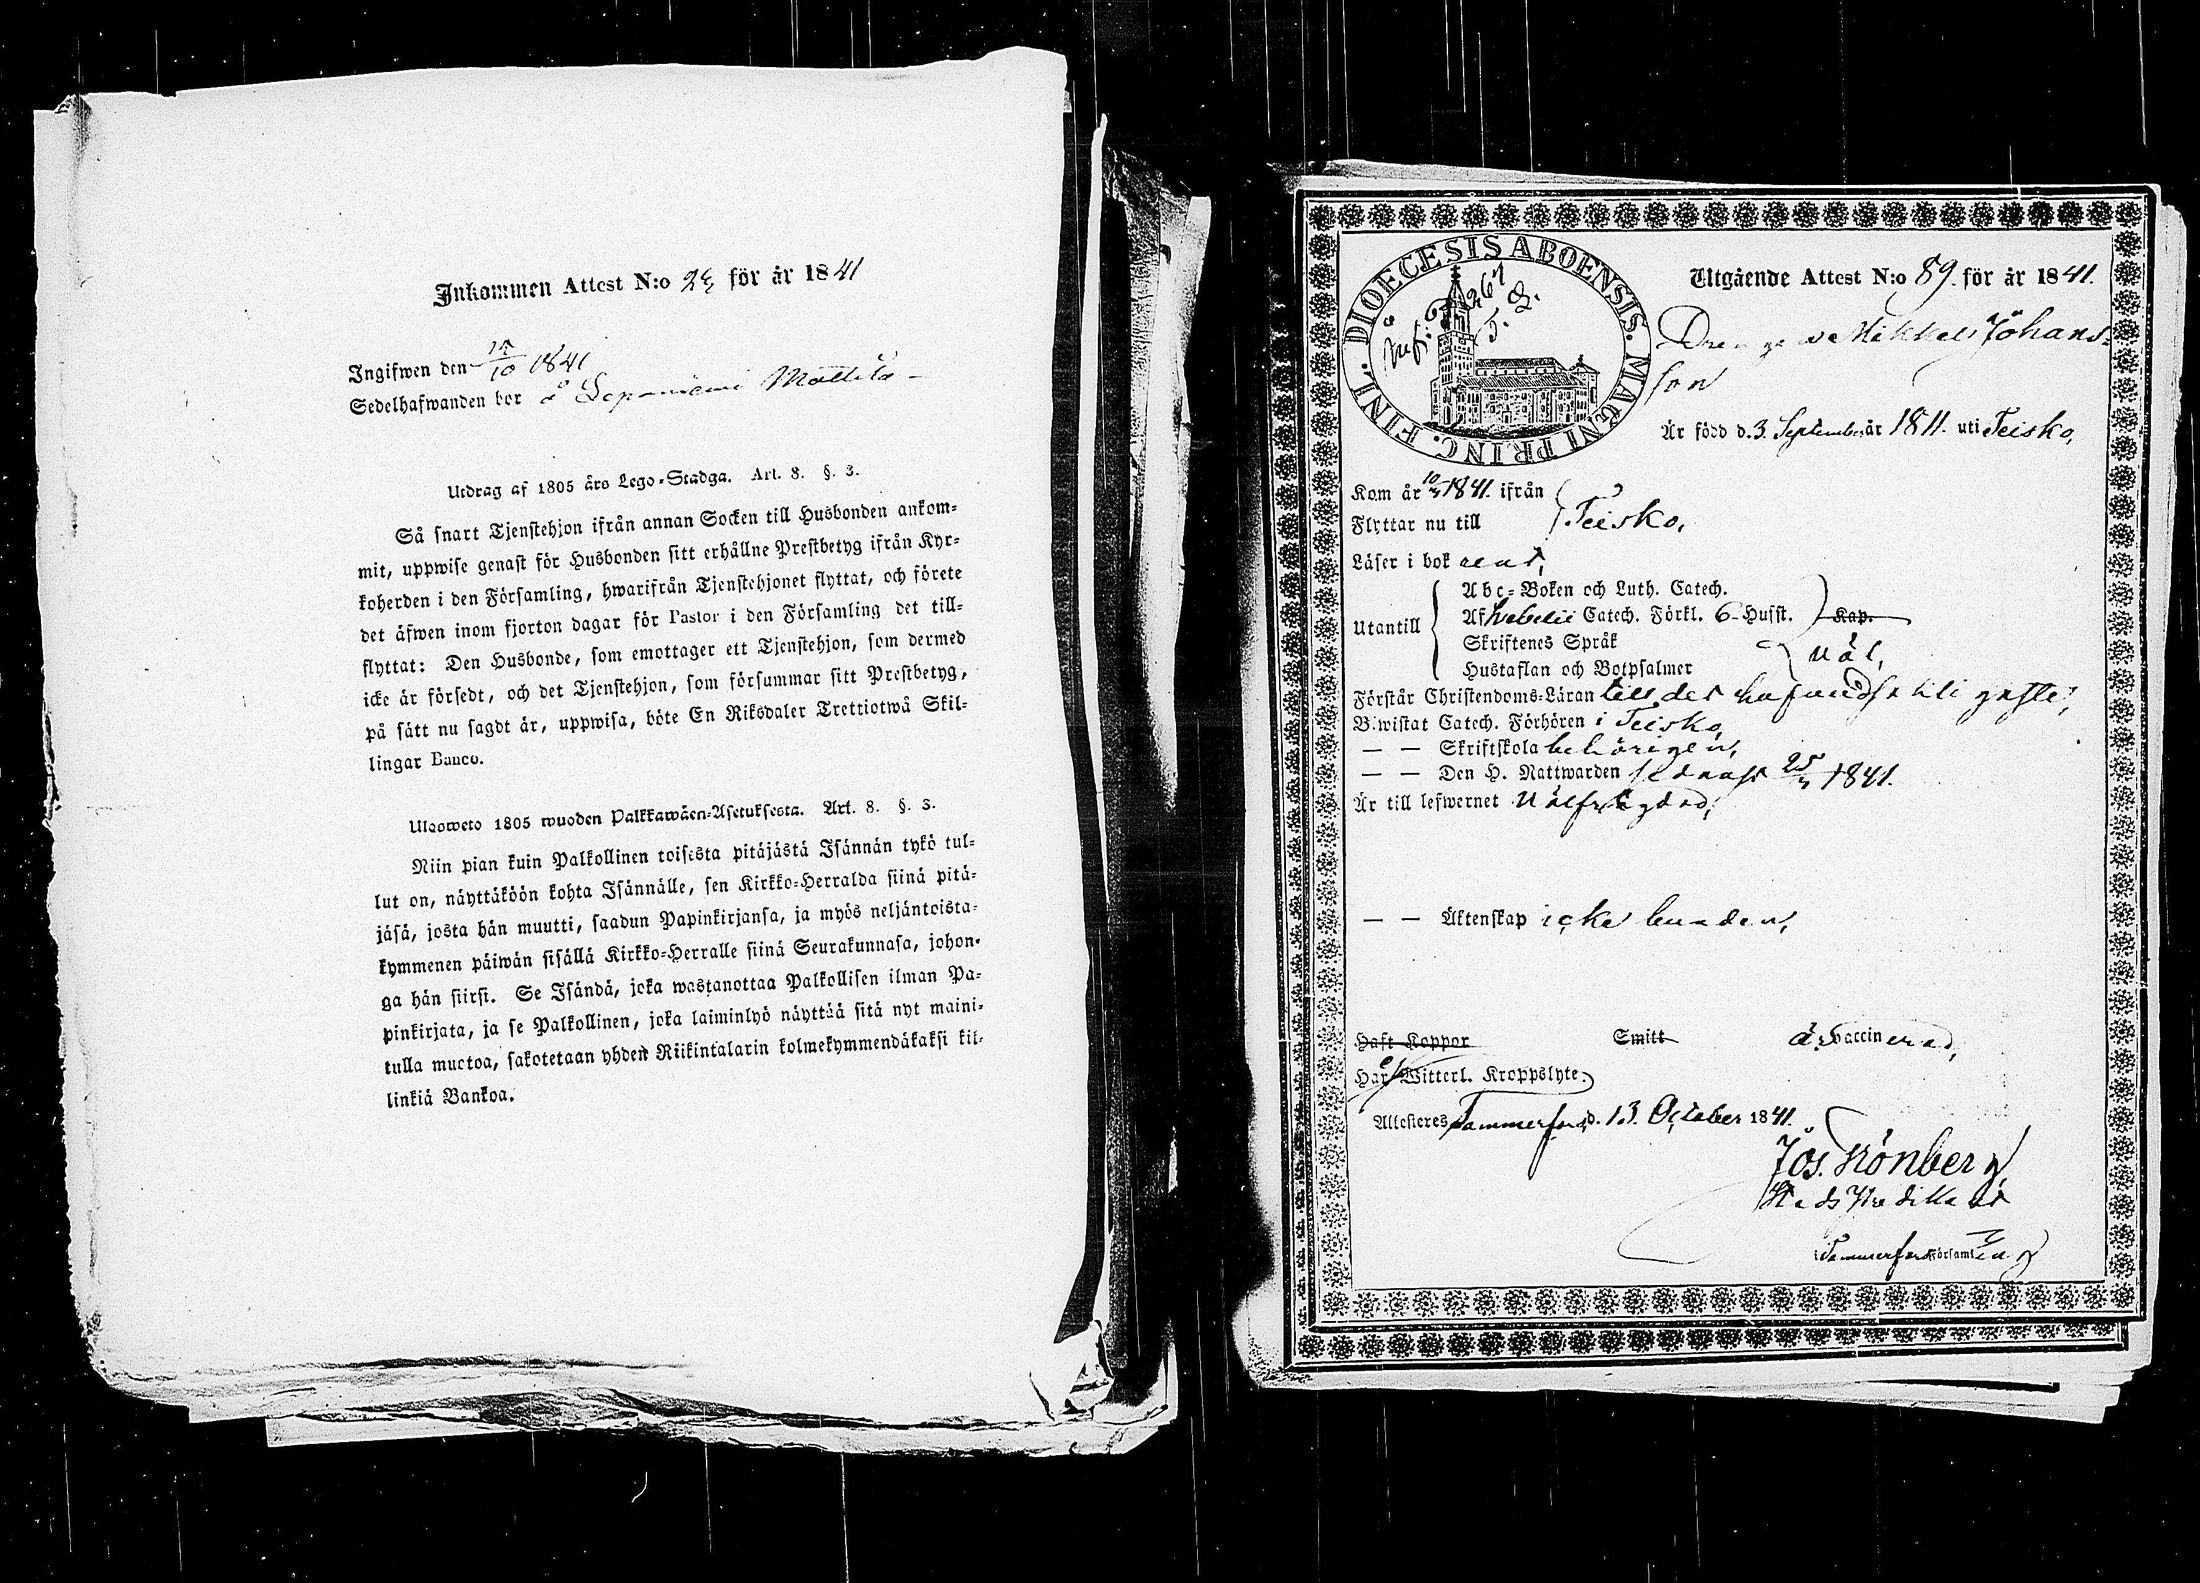 Inkommen Attest N:o för år 1841
Ingifwen den /10 1841
Sedelhafwanden bor å Mattila
Utdrag af 1805 års Lego-Stadga. Art. 8. §. 3.
Så snart Tjenstehjon ifrån annan Socken till Husbonden ankom-
mit, uppwise genast för Husbonden sitt erhållne Prestbetyg ifrån Kyr-
koherden i den Församling, hwarifrån Tjenstehjonet flyttat, och förete
det äfwen inom fjorton dagar för Pastor i den Församling det till-
flyttat: Den Husbonde, som emottager ett Tjenstehjon, som dermed
icke är försedt, och det Tjenstehjon, som försummar sitt Prestbetyg,
på sätt nu sagdt är, uppwisa, böte En Riksdaler Trettiotwå Skil-
lingar Banco.
Ulosweto 1805 wuoden Palkkawäen-Asetuksesta. Art. 8. §. 3.
Niin pian kuin Palkollinen toisesta pitäjästä Isännän tykö tul-
lut on, näyttäköön kohta Isännälle, sen Kirkko-Herralda siinä pitä-
jäsä, josta hän muutti, saadun Papinkirjansa, ja myös neljäntoista-
kymmenen päiwän sisällä Kirkko-Herralle siinä Seurakunnasa, johon-
ga hän siirsi. Se Isändä, joka wastanottaa Palkollisen ilman Pa-
pinkirjata, ja se Palkollinen, joka laiminlyö näyttää sitä nyt maini-
tulla muotoa, sakotetaan yhden Riikintalarin kolmekymmendäkaksi kil-
linkiä Bankoa.
DIOECESIS ABOENSIS. MAGNI PRINC. FINL.
Utgående Attest N:o 89. för år 1841.
Drengen Mikkel Johans-
son
Är född d. 3. September år 1811. uti Teisko,
Kom år 1841. ifrån
Flyttar nu till Teisko,
Läser i bok rent,
Abc-Boken och Luth. Catech.
Utantill Af Svebelii Catech. Förkl. 6-Husst. Kap.
Skriftenes Språk
Hustaflan och Botpsalmer väl,
Förstår Christendoms-Läran till det
Biwistat Catech. Förhören i Teisko,
— — Skriftskola behörigen,
— — Den H. Nattwarden sednast 25/ 1841.
Är till lefwernet välfrägdad,
— — Äktenskap icke bunden,
Haft Koppor Smitt är vaccinerad,
Har Witterl. Kroppslyte
Attesteres Tammerfors d. 13. October 1841.
Jos. Grönberg
StadsPredikant
i Tammerfors Församling